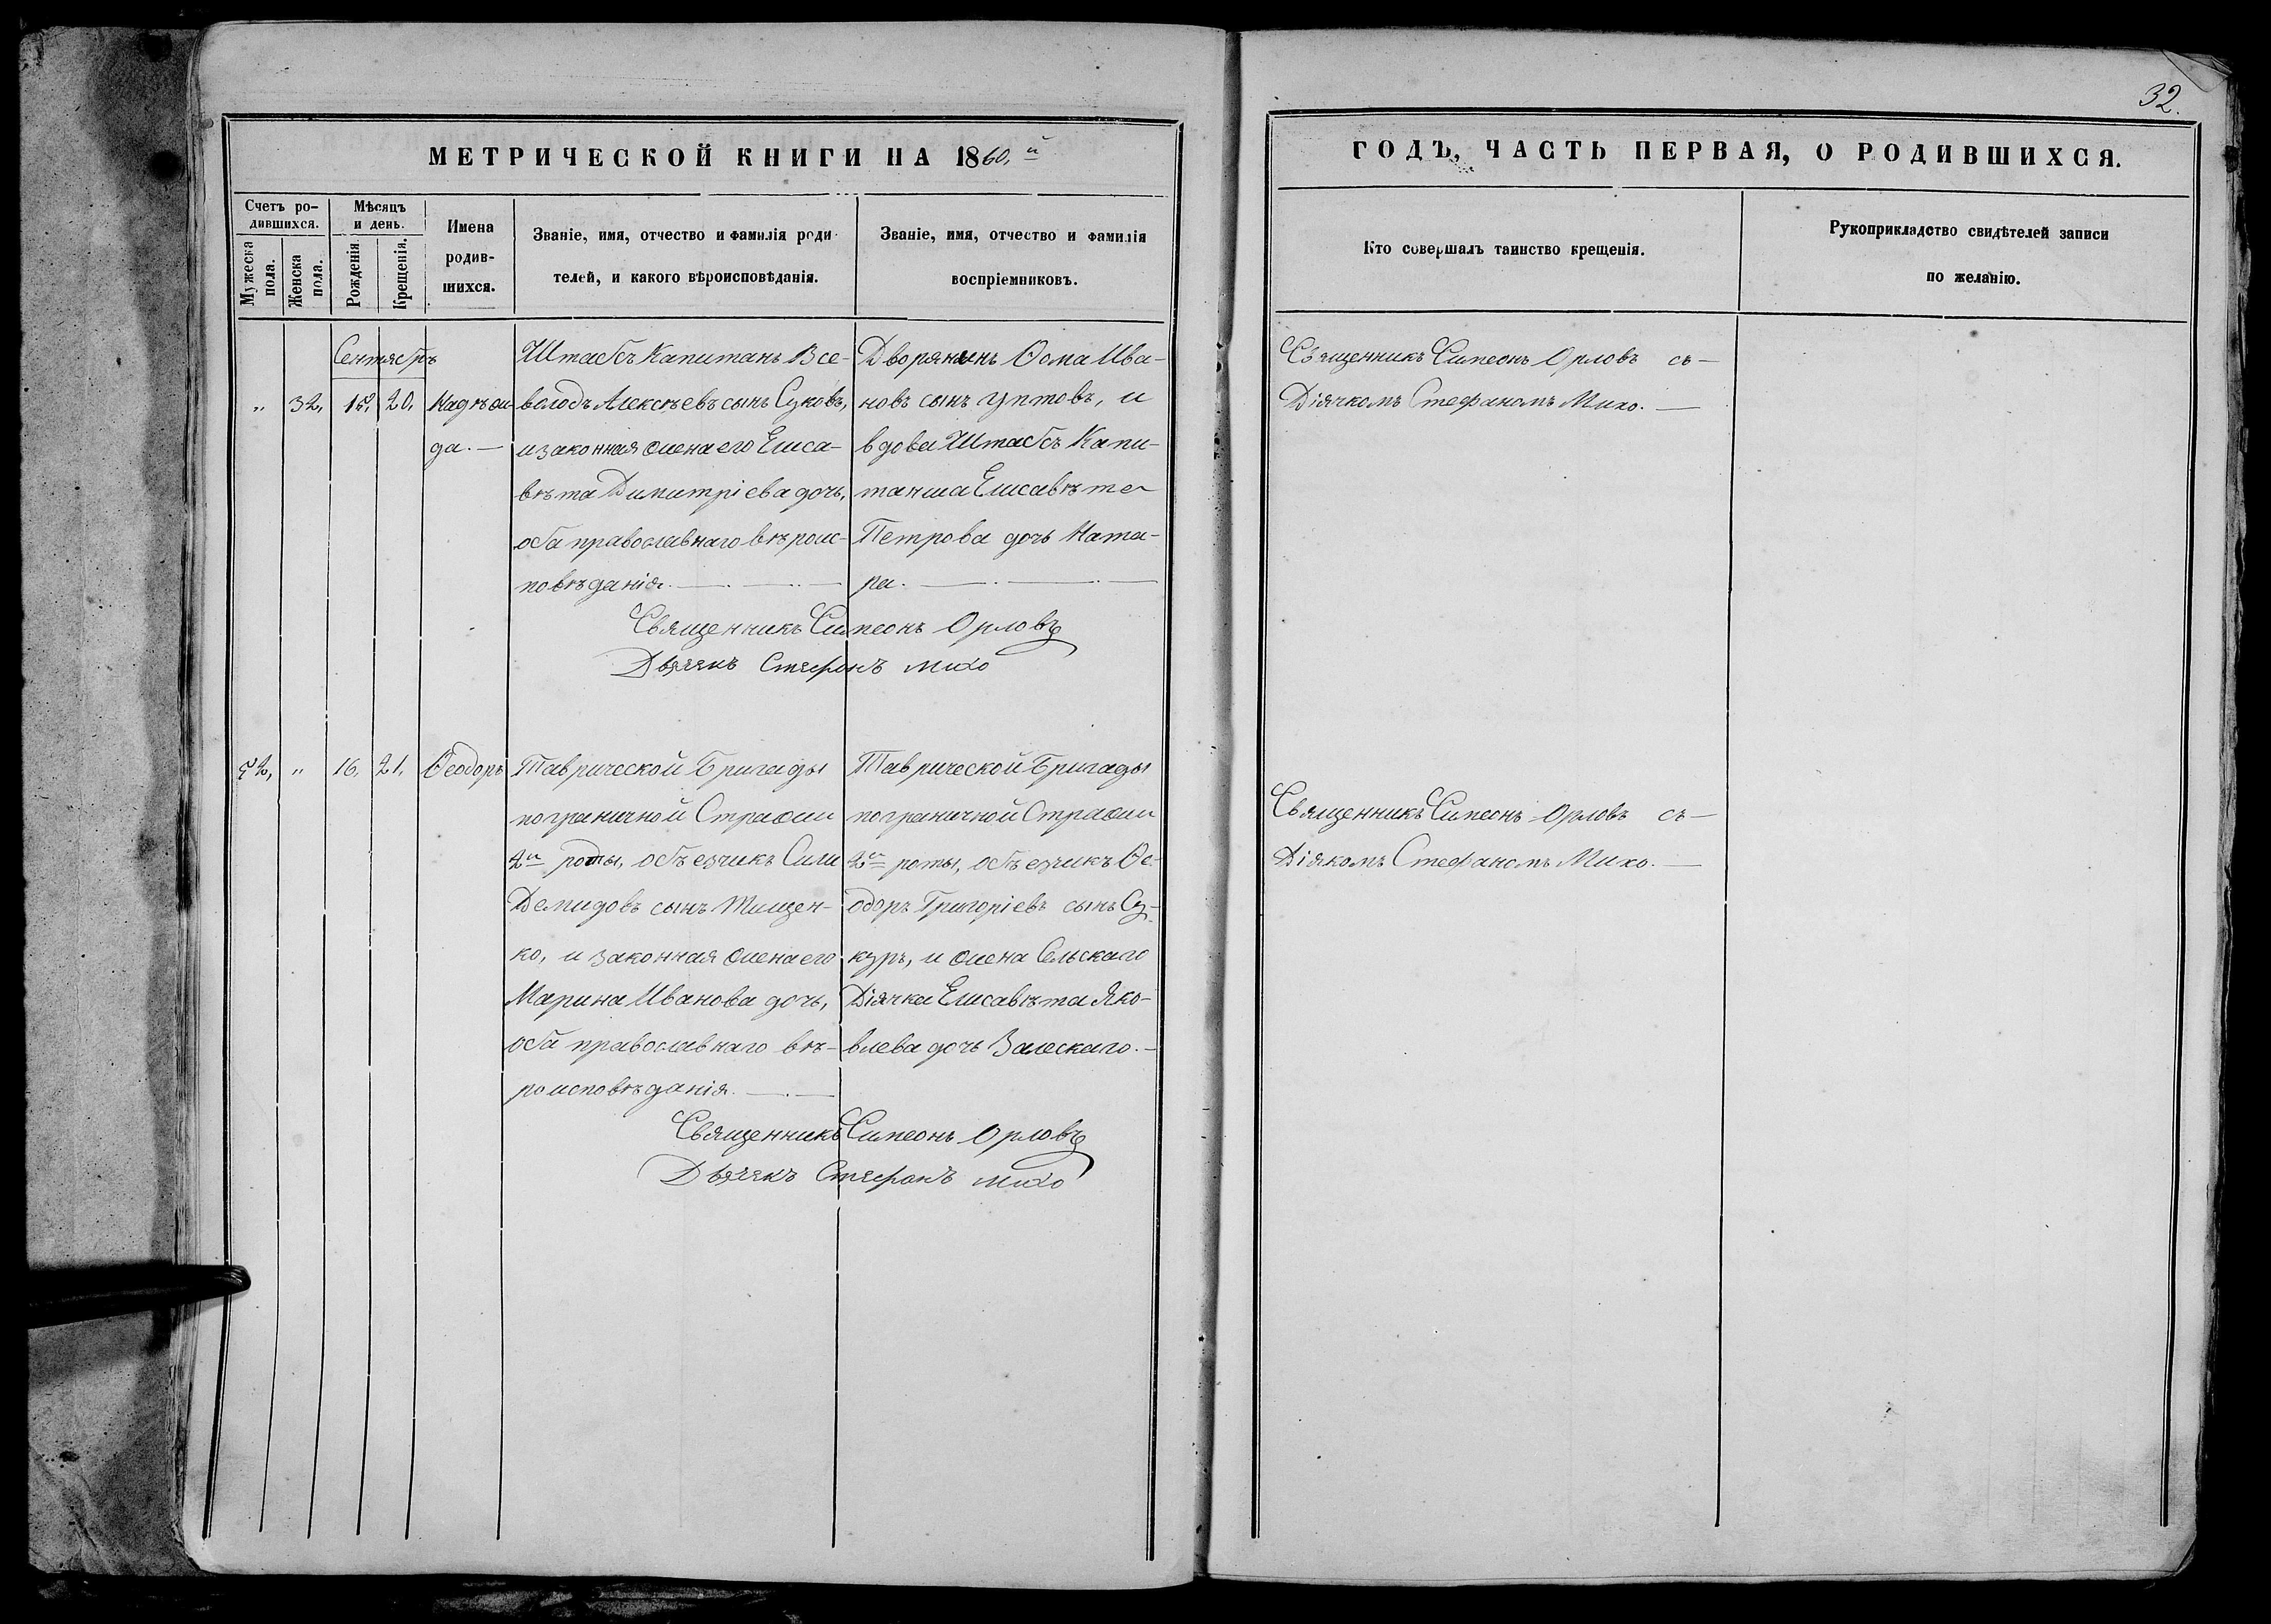 32.
МЕТРИЧЕСКОЙ КНИГИ НА 1860.й
ГОДЪ, ЧАСТЬ ПЕРВАЯ, О РОДИВШИХСЯ.
Счетъ ро-
дившихся.
Мужеска
пола.
Женска
пола.
Мѣсяцъ
и день.
Рожденія.
Крещенія.
Имена
родив-
шихся.
Званіе, имя, отчество и фамилія роди-
телей, и какого вѣроисповѣданія.
Званіе, имя, отчество и фамилія
воспріемниковъ.
Кто совершалъ таинство крещенія.
Рукоприкладство свидѣтелей записи
по желанію.
Сентябръ
„ 32, 15, 20,
Надѣж
да. —
Штабсъ Капитанъ Все-
володъ Алексѣевъ сынъ Суковъ,
и законная жена его Елиса-
вѣта Димитріева дочь,
оба православнаго вѣроис-
повѣданія. —
Дворянинъ Ѳома Ива-
новъ сынъ, и
вдова Штабсъ Капи-
танша Елисавѣта
Петрова дочь Ката-
ра. —
Священникъ Симеонъ Орловъ
Дьячекъ Стефанъ Михо
Священникъ Симеонъ Орловъ съ —
Діячкомъ Стефаномъ Михо. —
52, „ 16, 21,
Ѳеодоръ
Таврической Бригады
пограничной Стражи
2й роты, объезчикъ Сила
Демидовъ сынъ Тищен-
ко, и законная жена его
Марина Иванова дочь,
оба православнаго вѣ-
роисповѣданія. —
Таврической Бригады
пограничной Стражи
2й роты, объезчикъ Ѳе-
одоръ Григоріевъ сынъ Су-
куръ, и жена Сельскаго
Діячка Елисавѣта Яко-
влева дочь Залескаго. —
Священникъ Симеонъ Орловъ
Дьячекъ Стефанъ Михо
Священникъ Симеонъ Орловъ съ —
Діякомъ Стефаномъ Михо. —